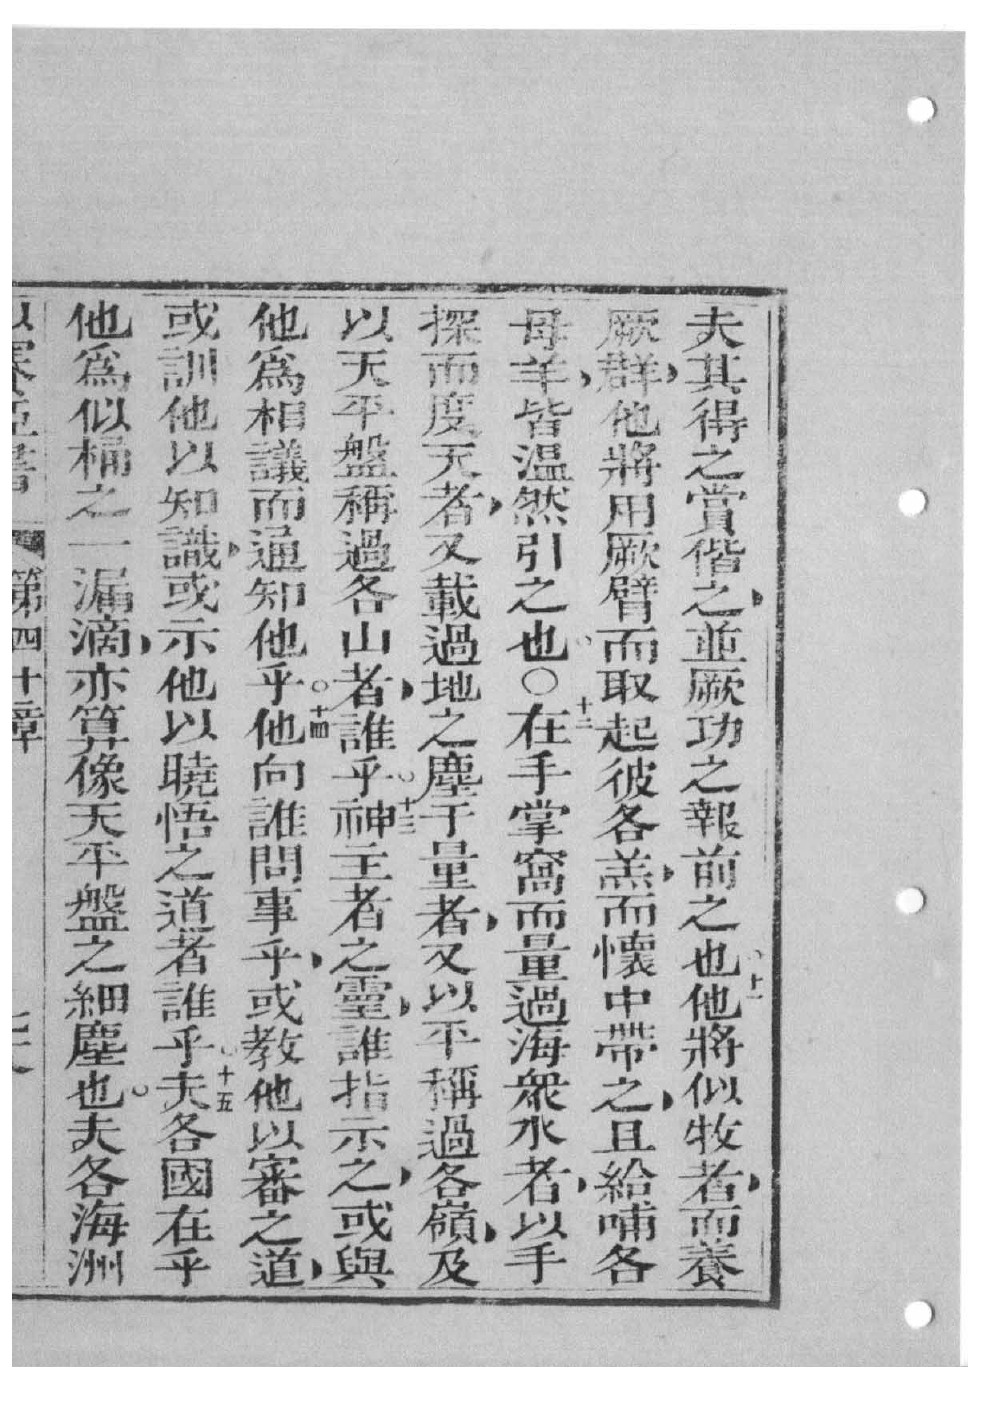 夫其得之賞偕之並厥功之報前之也。十一他將似牧者而養
厥群他將用厥臂而取起彼各羔而懷中帶之且給哺各
母羊皆温然引之也○十二在手掌窩而量過海衆水者以手
探而度天者又載過地之塵于量者又以平稱過各嶺及
以天平盤稱過各山者誰乎。十三神主者之靈誰指示之或與
他爲相議而通知他乎。十四他向誰問事乎或教他以審之道
或訓他以知識或示他以曉悟之道者誰乎。十五夫各國在乎
他爲似桶之一漏滴亦算像天平盤之細塵也。夫各海洲
以賽亞書 第四十章